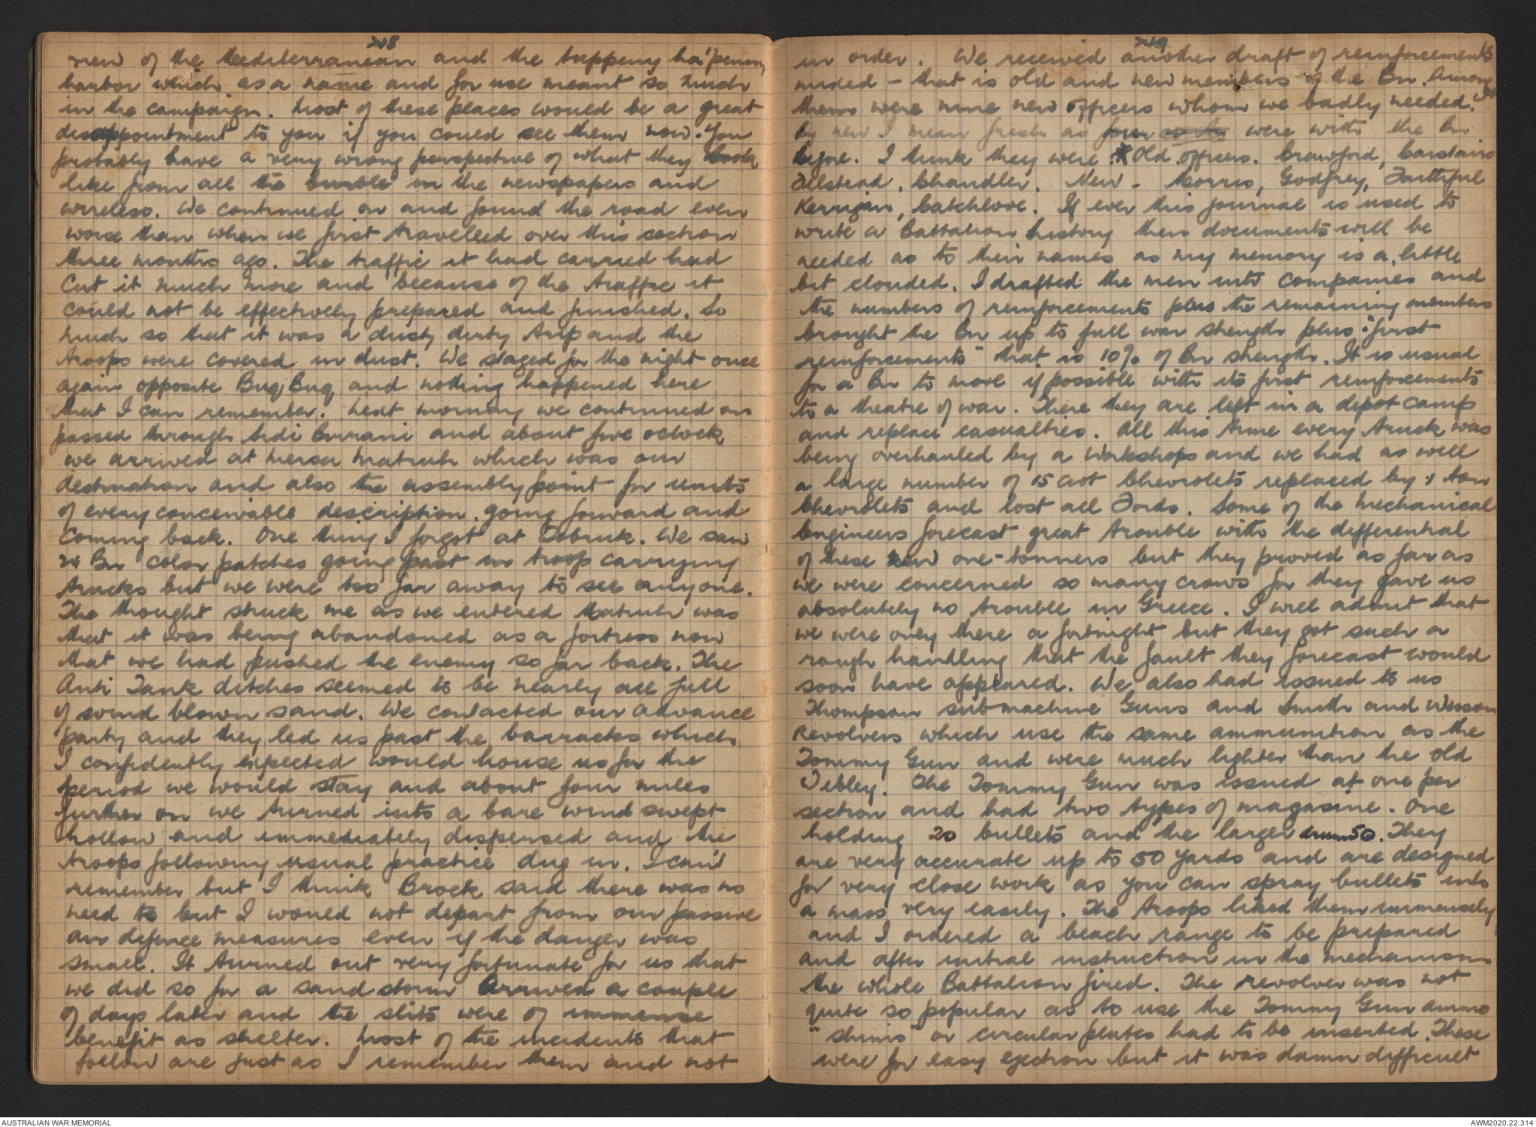 248
view of the Mediterranean and the tuppeny ha'penny
harbor which as a name and for use meant so much
in the campaign. Most of these places would be a great
disappointment to you if you could see them now. You
probably have a very wrong perspective of what they look
like from all the in the newspapers and
wireless. We continued on and found the road even
worse than when we first travelled over this section
three months ago. The traffic it had carried had
Cut it much more and because of the traffic it
could not be effectively prepared and finished. So
much so that it was a dusty dirty trip and the
troops were covered in dust. We staged for the night once
again opposite Buq Buq and nothing happened here
that I can remember. Next morning we continued on
passed through Sidi Burani and about five oclock
we arrived at Mersa Matruh which was our
destination and also the assembly point for units
of every conceivable description, going forward and
Coming back. One thing I forgot at Tobruk. We saw
Bn color patches going past in troop carrying
trucks but we were too far away to see anyone.
The thought struck me as we entered Matruh was
that it was being abandoned as a fortress now
that we had pushed the enemy so far back. The
Anti Tank ditches seemed to be nearly all full
of wind blown sand. We contacted our advance
party and they led us past the barracks which
I confidently expected would house us for the
period we would stay and about four miles
further on we turned into a bare wind swept
hollow and immediately dispersed and the
troops following usual practice dug in. I can't
remember but I think Brock said there was no
need to but I would not depart from our passive
air defence measures even if the danger was
small. It turned out very fortunate for us that
we did so for a sand storm arrived a couple
of days later and the slits were of immense
benefit as shelter. Most of the incidents that
follow are just as I remember them and not
249
in order. We received another draft of reinforcements
mixed - that is old and new members of the Bn. Among
them were nine new officers whom we badly needed.
By new I mean fresh as four were with the Bn
before. I think they were Old officers. Crawford, Carstairs
Illstead, Chandler. New - Morris, Godfrey, Faithful
Kerrigan, Catchlove. If ever this journal is used to
write a Battalion history then documents will be
needed as to their names as my memory is a little
bit clouded. I drafted the men into Companies and
the numbers of reinforcements plus the remaining members
brought the Bn up to full war strength plus "first
reinforcements" that is 10% of Bn strength. It is usual
for a Bn to move if possible with its first reinforcements
to a theatre of war. There they are left in a depot camp
and replace casualties. All this time every truck was
being overhauled by a Workshops and we had as well
a large number of 15 cwt Chevrolets replaced by 1 ton
Chevrolets and lost all Fords. Some of the mechanical
Engineers forecast great trouble with the differential
of these new one-tonners but they proved as far as
we were concerned so many crows for they gave us
absolutely no trouble in Greece. I will admit that
we were only there a fortnight but they got such a
rough handling that the fault they forecast would
soon have appeared. We also had issued to us
Thompson submachine Guns and Smith and Wesson
Revolvers which use the same ammunition as the
Tommy Gun and were much lighter than the old
Webley. The Tommy Gun was issued at one per
section and had two types of magazine. One
holding 20 bullets and the larger drum 50. They
are very accurate up to 50 yards and are designed
for very close work as you can spray bullets into
a mass very easily. The troops liked them immensely
and I ordered a beach range to be prepared
and after initial instruction in the mechanism
the whole Battalion fired. The revolver was not
quite so popular as to use the Tommy Gun ammo
"shims" or circular plates had to be inserted. These
were for easy ejection but it was damn difficult
AUSTRALIAN WAR MEMORIAL
AWM2020.22.314